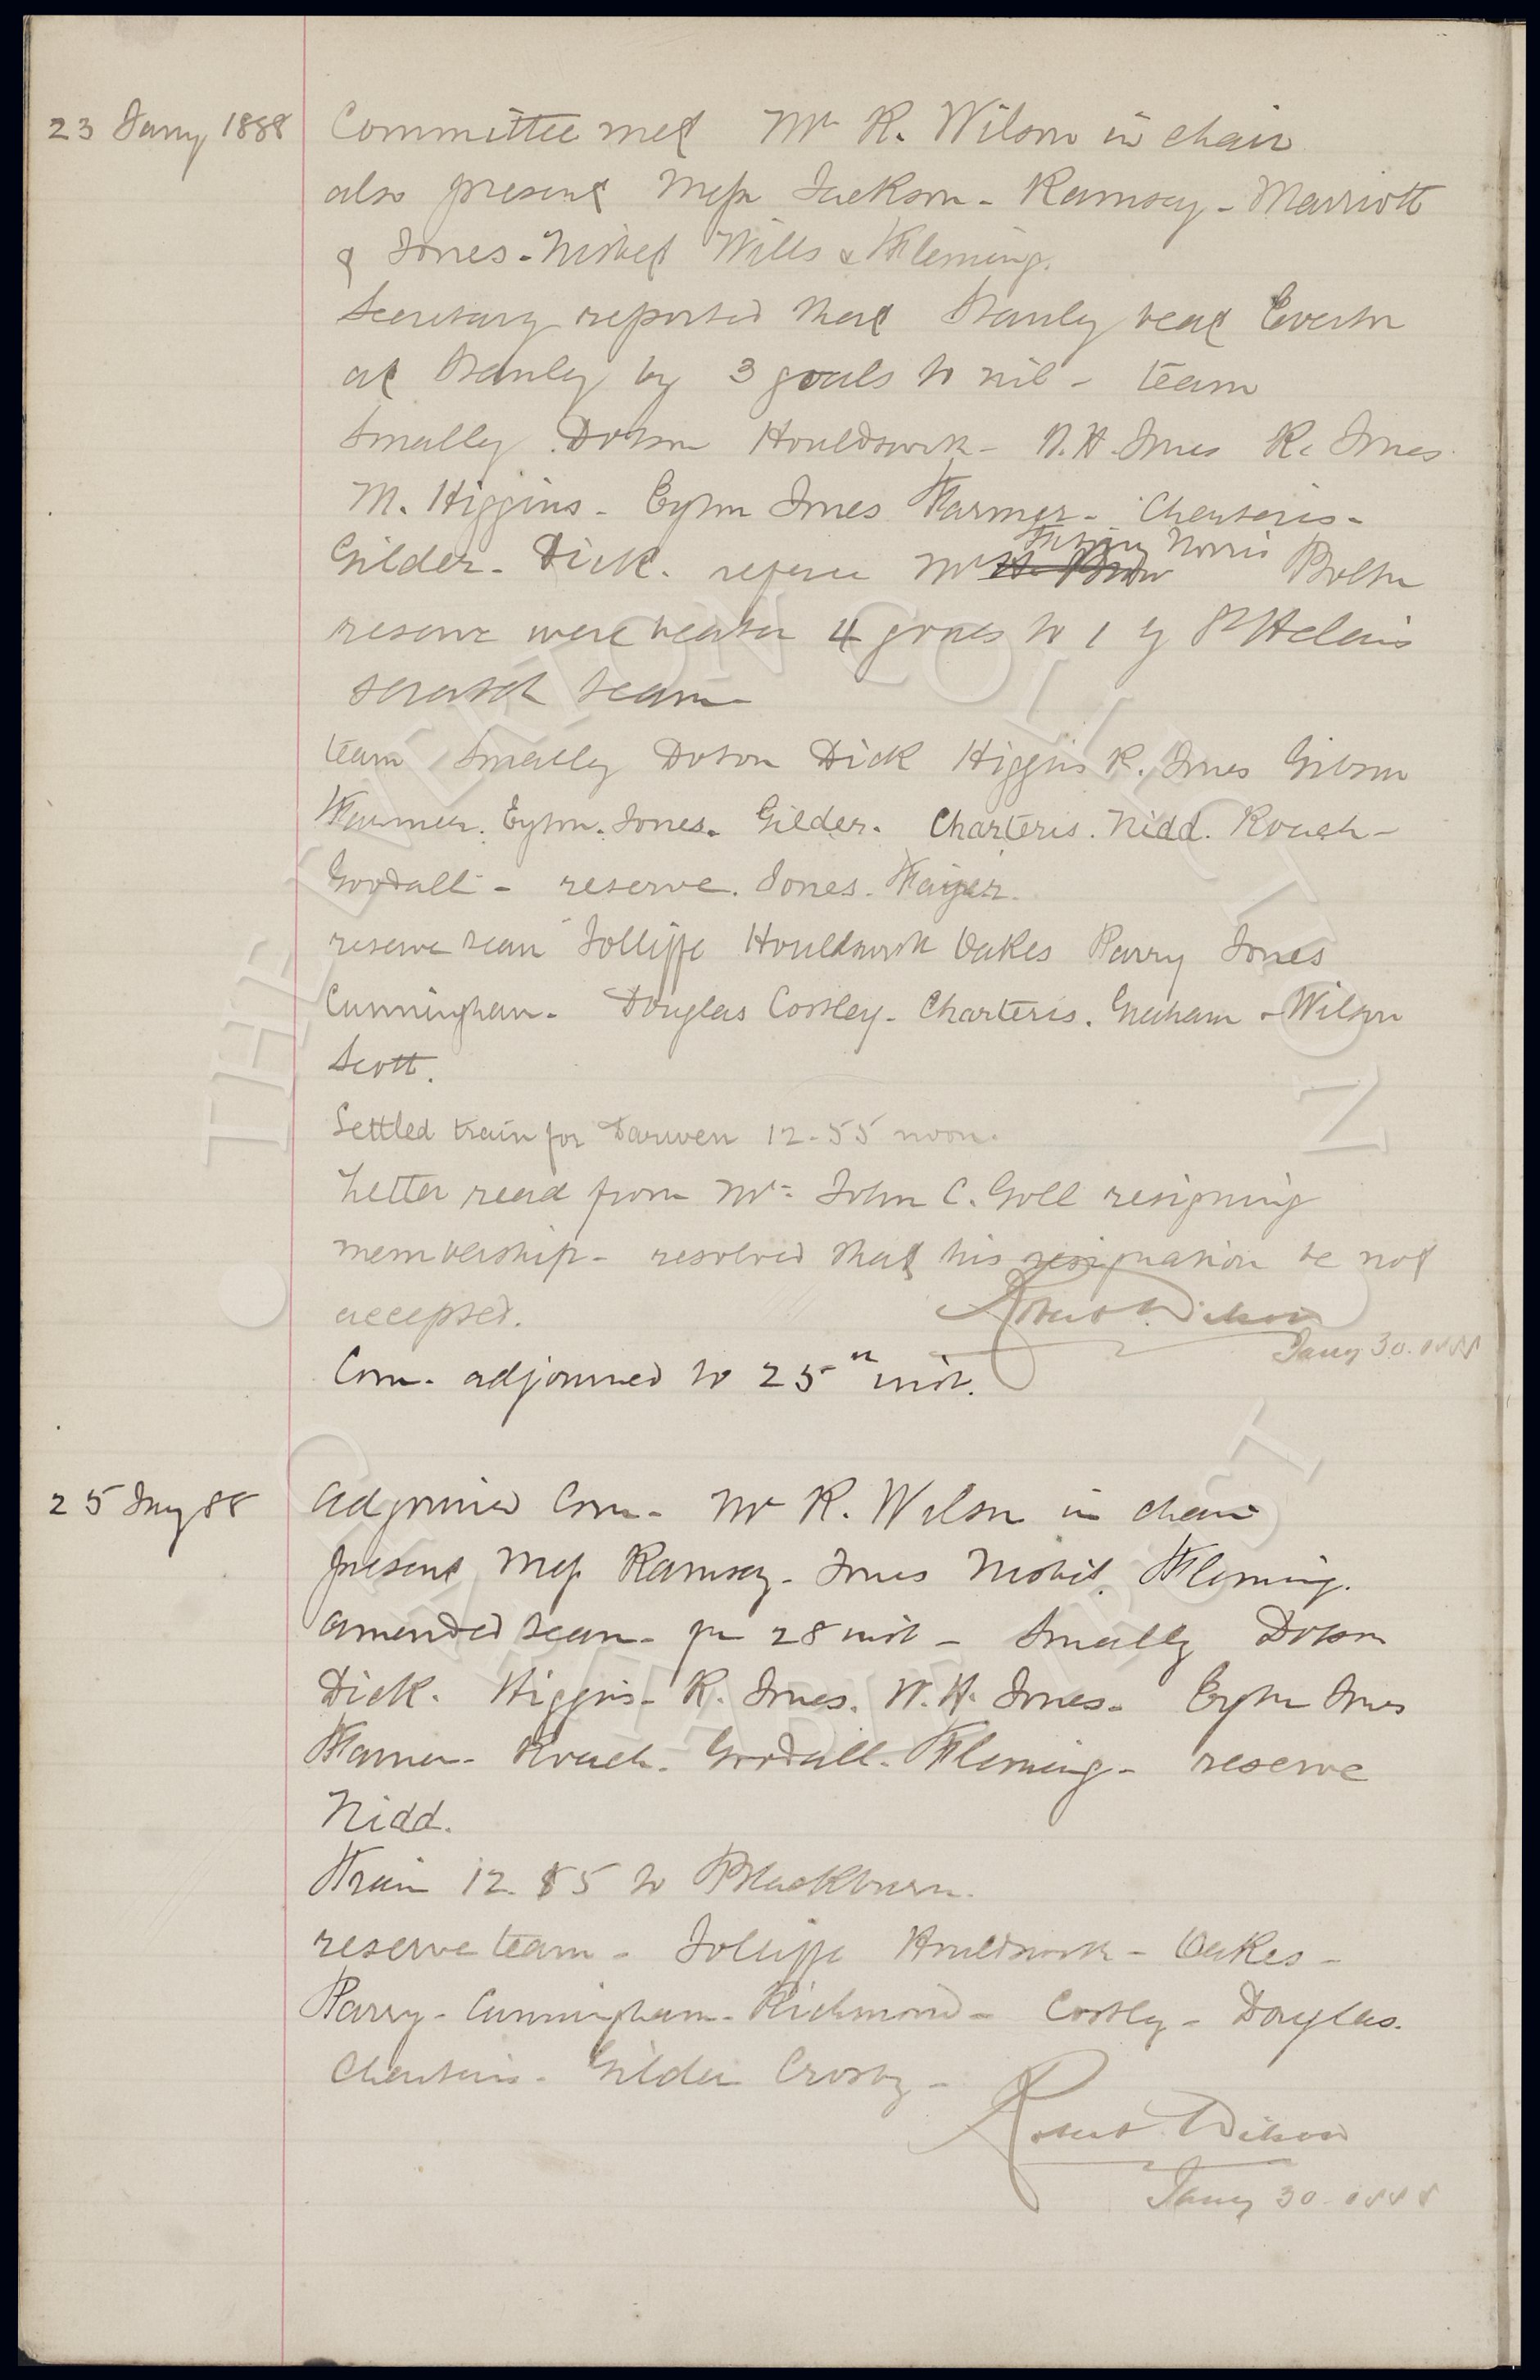 23 Jany 1888 Committee met Mr R. Wilson in chair
also present Messrs Jackson - Ramsay - Marriott
& Jones - Nisbet Wills & Fleming.
Secretary reported that Stanley beat Everton
at Stanley by 3 goals to nil - team
Smalley Dobson Houldsworth - W.H. Jones R. Jones
M. Higgins - Eyton Jones Farmer - Charteris -
Gilder - Dick. referee Mr Norris Bolton
reserve were beaten 4 goals to 1 by St Helens
scratch team
team Smalley Dobson Dick Higgins R. Jones Gibson
Farmer. Eyton. Jones. Gilder. Charteris. Nidd. Roach -
Goodall - reserve. Jones.
reserve team Jolliffe Houldsworth Oakes Parry Jones
Cunningham - Douglas Costley - Charteris. Graham - Wilson
Scott.
Settled train for Darwen 12-55 noon.
Letter read from Mr John C. Goll resigning
membership - resolved that his resignation be not
accepted. Robert Wilson
Jany 30. 1888
Com. adjourned to 25th inst.
25 Jany 88 Adjourned Com - Mr R. Wilson in chair
present Messrs Ramsay - Jones Nisbet. Fleming.
amended team for 28 inst - Smalley Dobson
Dick. Higgins - R. Jones. W.H. Jones - Eyton Jones
Farmer - Roach. Goodall. Fleming - reserve
Nidd.
Train 12.55 to Blackburn.
reserve team - Jolliffe Houldsworth - Oakes -
Parry - Cunningham - Richmond - Costley - Douglas.
Charteris - Gilder Crosby -
Robert Wilson
Jany 30 - 1888
THE EVERTON COLLECTION
CHARITABLE TRUST